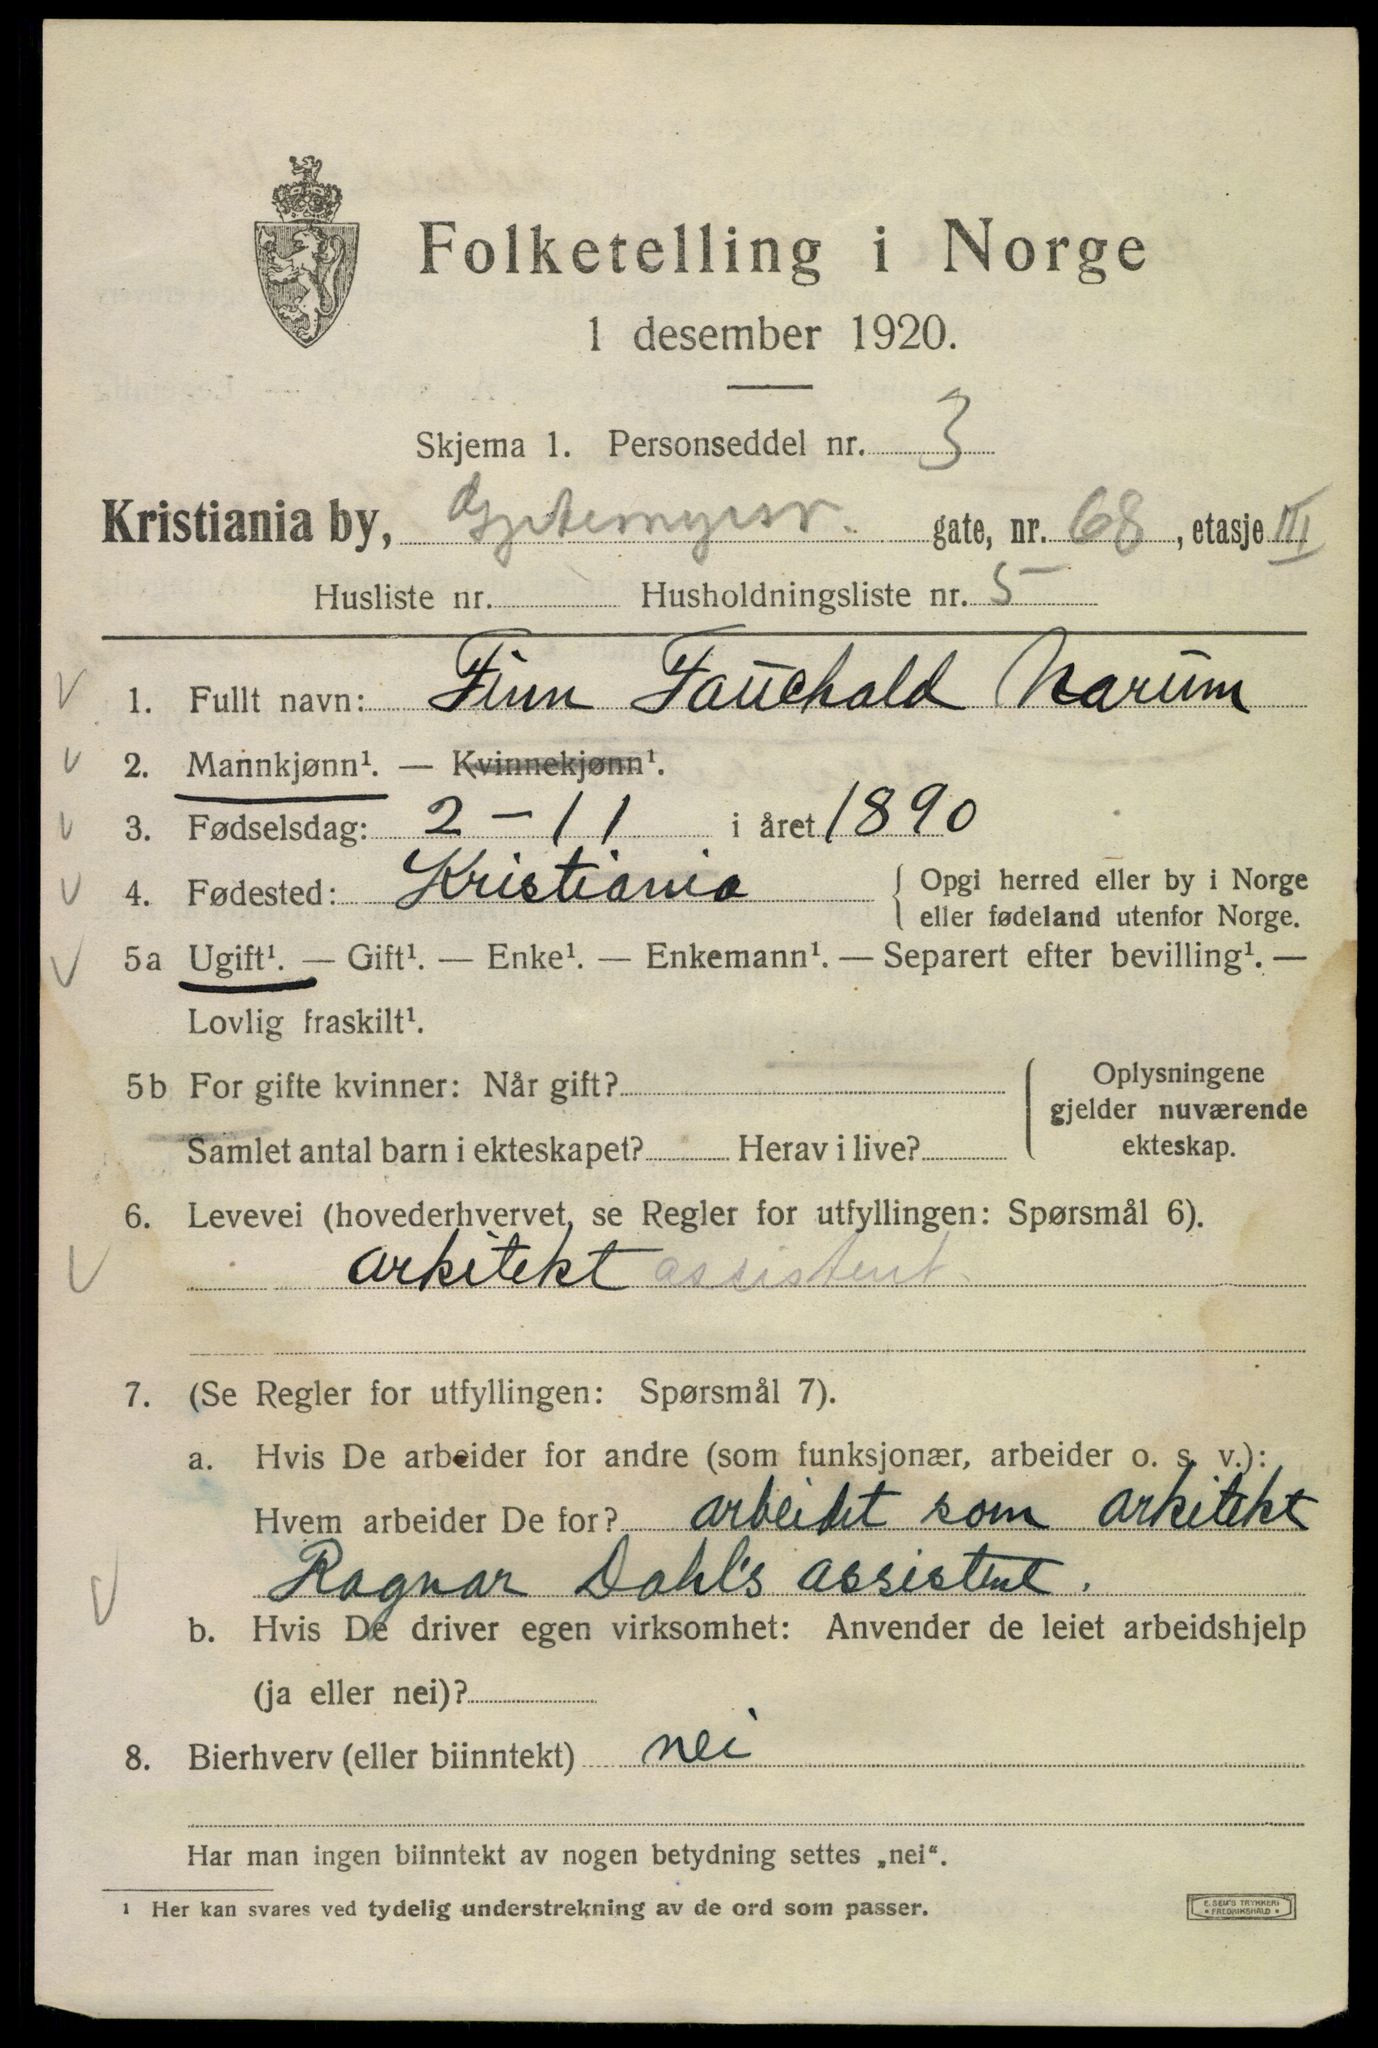 Folketelling i Norge
1 desember 1920.
Skjema 1. Personseddel nr. 3
Kristiania by, Gjetemyrsv. gate, nr. 68, etasje III
Husliste nr. Husholdningsliste nr. 5
1. Fullt navn: Finn Fauchald Narum
2. Mannkjønn¹. — Kvinnekjønn¹.
3. Fødselsdag: 2-11 i året 1890
4. Fødested: Kristiania { Opgi herred eller by i Norge
eller fødeland utenfor Norge.
5a Ugift¹. — Gift¹. — Enke¹. — Enkemann¹. — Separert efter bevilling¹. —
Lovlig fraskilt¹.
5b For gifte kvinner: Når gift? { Oplysningene
gjelder nuværende
Samlet antal barn i ekteskapet? Herav i live? ekteskap.
6. Levevei (hovederhvervet, se Regler for utfyllingen: Spørsmål 6).
arkitekt assistent
7. (Se Regler for utfyllingen: Spørsmål 7).
a. Hvis De arbeider for andre (som funksjonær, arbeider o. s. v.):
Hvem arbeider De for? arbeidet som arkitekt
Ragnar Dahl's assistent.
b. Hvis De driver egen virksomhet: Anvender de leiet arbeidshjelp
(ja eller nei)?
8. Bierhverv (eller biinntekt) nei
Har man ingen biinntekt av nogen betydning settes „nei“.
¹ Her kan svares ved tydelig understrekning av de ord som passer.
E. SEM'S TRYKKERI
• FREDRIKSHALD •